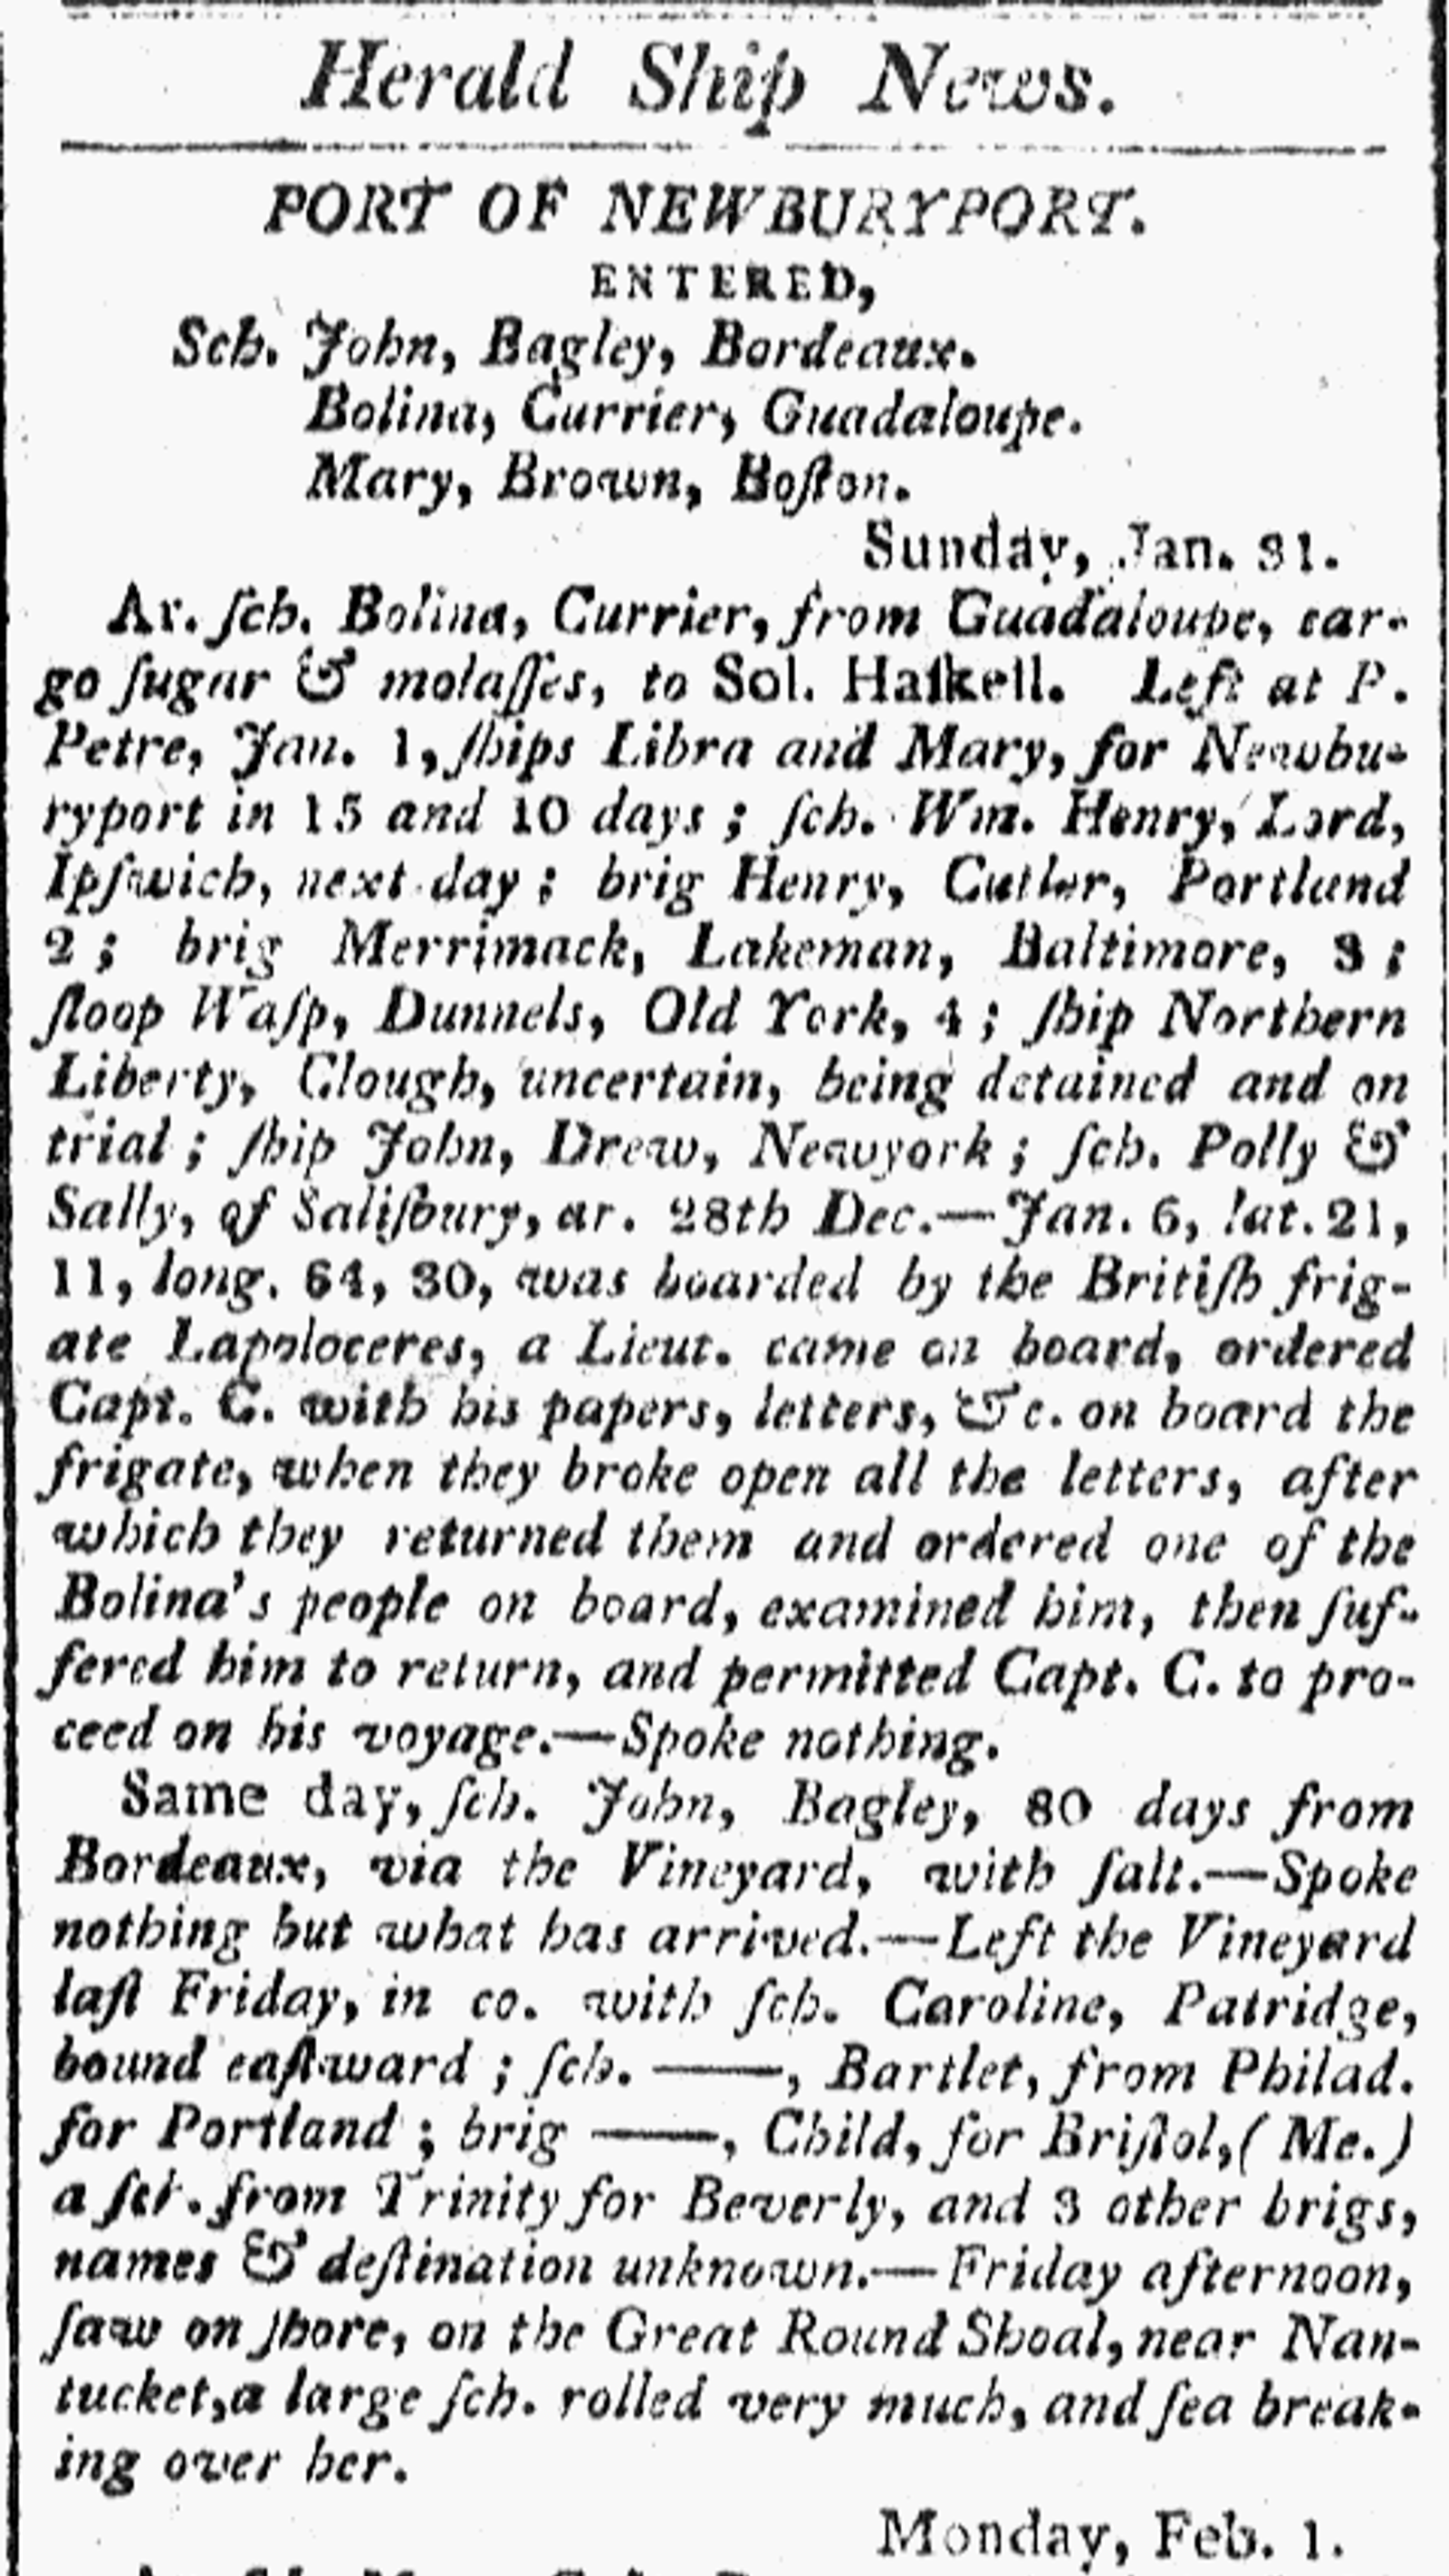 Herald Ship News.
PORT OF NEWBURYPORT.
ENTERED,
Sch. John, Bagley, Bordeaux.
Bolina, Currier, Guadaloupe.
Mary, Brown, Boſton.
Sunday, Jan. 31.
Ar. ſch. Bolina, Currier, from Guadaloupe, car-
go ſugar & molaſſes, to Sol. Haſkell. Left at P.
Petre, Jan. 1, ſhips Libra and Mary, for Newbu-
ryport in 15 and 10 days ; ſch. Wm. Henry, Lord,
Ipſwich, next day ; brig Henry, Cutler, Portland
2 ; brig Merrimack, Lakeman, Baltimore, 3 ;
ſloop Waſp, Dunnels, Old York, 4 ; ſhip Northern
Liberty, Clough, uncertain, being detained and on
trial ; ſhip John, Drew, Newyork ; ſch. Polly &
Sally, of Saliſbury, ar. 28th Dec.—Jan. 6, lat. 21,
11, long. 64, 30, was boarded by the Britiſh frig-
ate Lapoloceres, a Lieut. came on board, ordered
Capt. C. with his papers, letters, &c. on board the
frigate, when they broke open all the letters, after
which they returned them and ordered one of the
Bolina's people on board, examined him, then ſuf-
fered him to return, and permitted Capt. C. to pro-
ceed on his voyage.—Spoke nothing.
Same day, ſch. John, Bagley, 80 days from
Bordeaux, via the Vineyard, with ſalt.—Spoke
nothing but what has arrived.—Left the Vineyard
laſt Friday, in co. with ſch. Caroline, Patridge,
bound eaſtward ; ſch. ——, Bartlet, from Philad.
for Portland ; brig ——, Child, for Briſtol, ( Me. )
a ſch. from Trinity for Beverly, and 3 other brigs,
names & deſtination unknown.—Friday afternoon,
ſaw on ſhore, on the Great Round Shoal, near Nan-
tucket, a large ſch. rolled very much, and ſea break-
ing over her.
Monday, Feb. 1.